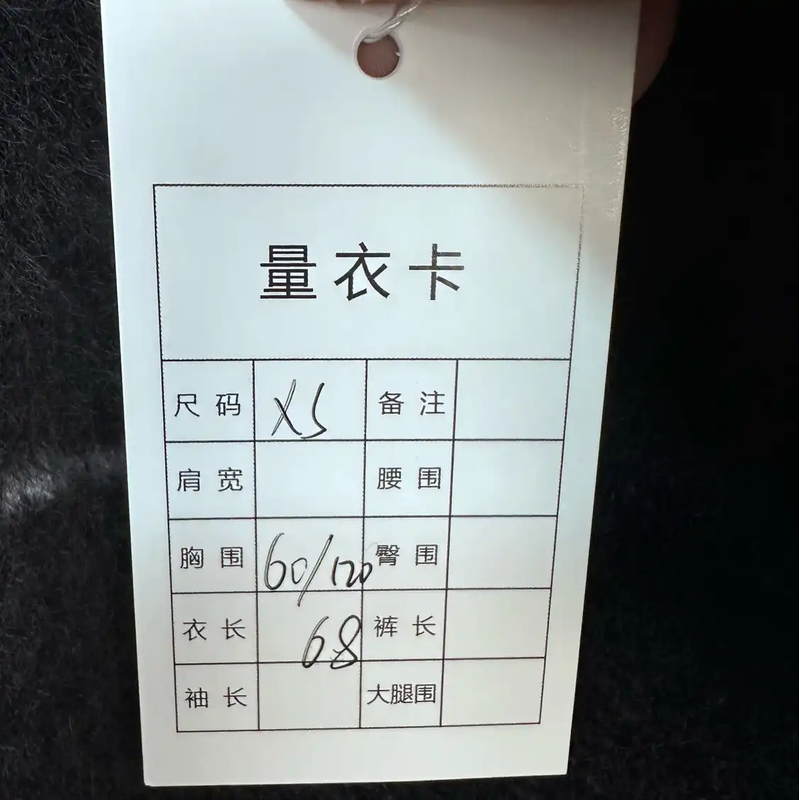 量衣卡
尺码 XS 备注
肩宽 腰围
胸围 60/120 臀围
衣长 68 裤长
袖长 大腿围